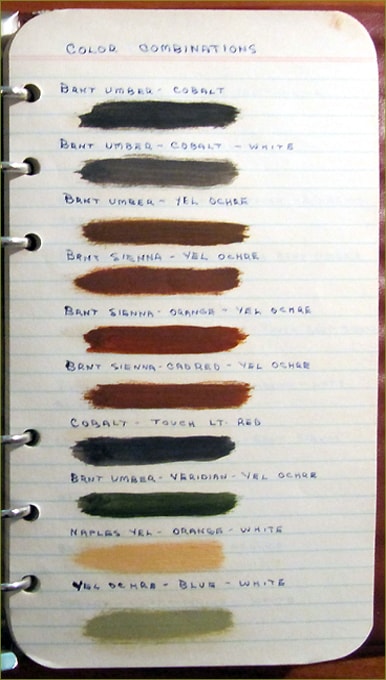 COLOR COMBINATIONS
BRNT UMBER - COBALT
BRNT UMBER - COBALT - WHITE
BRNT UMBER - YEL OCHRE
BRNT SIENNA - YEL OCHRE
BRNT SIENNA - ORANGE - YEL OCHRE
BRNT SIENNA - CAD RED - YEL OCHRE
COBALT - TOUCH LT. RED
BRNT UMBER - VERIDIAN - YEL OCHRE
NAPLES YEL - ORANGE - WHITE
YEL OCHRE - BLUE - WHITE